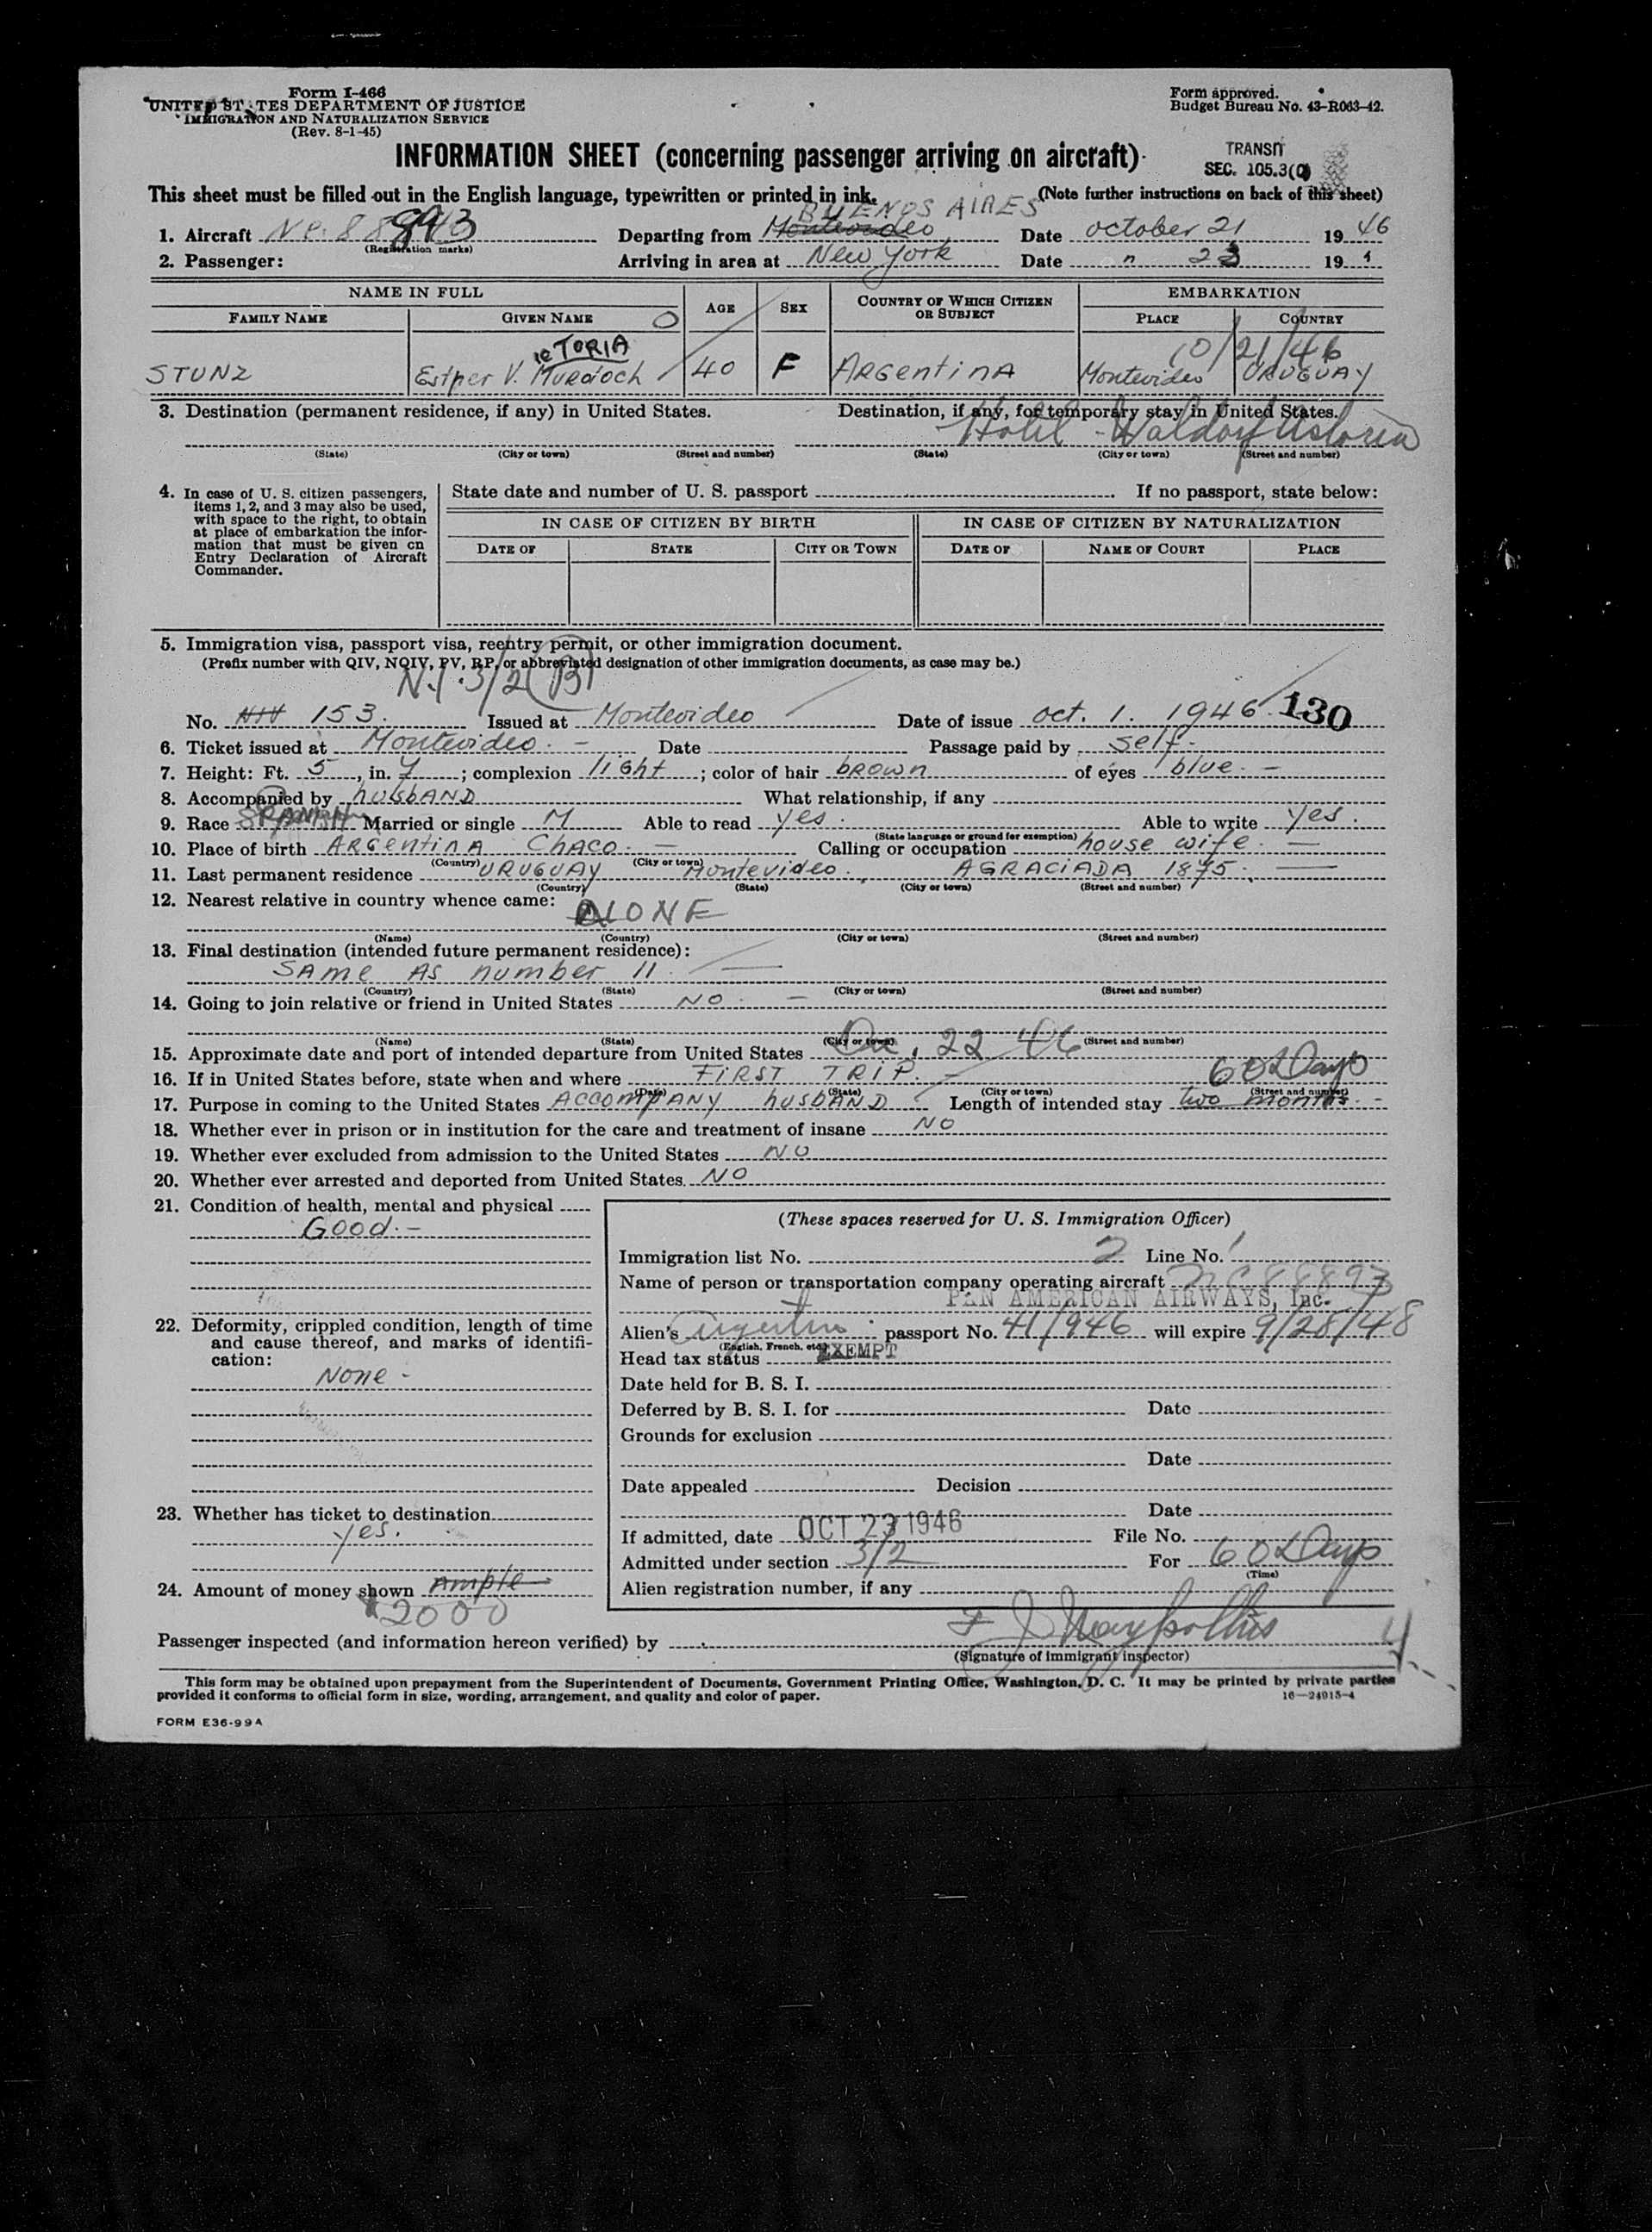 Form I-466
UNITED STATES DEPARTMENT OF JUSTICE
IMMIGRATION AND NATURALIZATION SERVICE
(Rev. 8-1-45)
Form approved.
Budget Bureau No. 43-R063-42.
INFORMATION SHEET (concerning passenger arriving on aircraft)
TRANSIT
SEC. 105.3(C)
This sheet must be filled out in the English language, typewritten or printed in ink.
(Note further instructions on back of this sheet)
BUENOS AIRES
1. Aircraft NC. 88893 Departing from Montevideo Date october 21 1946
(Registration marks)
2. Passenger: Arriving in area at New York Date " 23 19
NAME IN FULL AGE SEX COUNTRY OF WHICH CITIZEN OR SUBJECT EMBARKATION
FAMILY NAME GIVEN NAME PLACE COUNTRY
icTORIA 10/21/46
STUNZ Esther V. Murdoch 40 F Argentina Montevideo URUGUAY
3. Destination (permanent residence, if any) in United States. Destination, if any, for temporary stay in United States.
Hotel - Waldorf Astoria
(State) (City or town) (Street and number) (State) (City or town) (Street and number)
4. In case of U. S. citizen passengers, items 1, 2, and 3 may also be used, with space to the right, to obtain at place of embarkation the information that must be given on Entry Declaration of Aircraft Commander.
State date and number of U. S. passport If no passport, state below:
IN CASE OF CITIZEN BY BIRTH IN CASE OF CITIZEN BY NATURALIZATION
DATE OF STATE CITY OR TOWN DATE OF NAME OF COURT PLACE
5. Immigration visa, passport visa, reentry permit, or other immigration document.
(Prefix number with QIV, NQIV, PV, RP, or abbreviated designation of other immigration documents, as case may be.)
3/2 (B)
No. NIV 153. Issued at Montevideo Date of issue oct. 1. 1946 130
6. Ticket issued at Montevideo. - Date Passage paid by self.
7. Height: Ft. 5, in. 7; complexion light; color of hair brown of eyes blue. -
8. Accompanied by husband What relationship, if any
9. Race SPANISH Married or single M Able to read yes. Able to write yes.
(State language or ground for exemption)
10. Place of birth ARGentinA CHACO. - Calling or occupation house wife. -
(Country) (City or town)
11. Last permanent residence URUGUAY Montevideo. AGRACIADA 1875. -
(Country) (State) (City or town) (Street and number)
12. Nearest relative in country whence came:
NONE
(Name) (Country) (City or town) (Street and number)
13. Final destination (intended future permanent residence):
SAME AS number 11. -
(Country) (State) (City or town) (Street and number)
14. Going to join relative or friend in United States NO. -
(Name) (State) (City or town) (Street and number)
15. Approximate date and port of intended departure from United States Dec. 22 46
16. If in United States before, state when and where FIRST TRIP. -
(Date) (State) (City or town) (Street and number)
60 Days
17. Purpose in coming to the United States Accompany husband Length of intended stay two months. -
18. Whether ever in prison or in institution for the care and treatment of insane NO
19. Whether ever excluded from admission to the United States NO
20. Whether ever arrested and deported from United States NO
21. Condition of health, mental and physical
Good. -
22. Deformity, crippled condition, length of time and cause thereof, and marks of identification:
None -
23. Whether has ticket to destination
yes.
24. Amount of money shown Ample
$2000
(These spaces reserved for U. S. Immigration Officer)
Immigration list No. 2 Line No. 1
Name of person or transportation company operating aircraft NC88893
PAN AMERICAN AIRWAYS, INC.
Alien's Argentine passport No. 41/946 will expire 9/28/48
(English, French, etc.)
Head tax status EXEMPT
Date held for B. S. I.
Deferred by B. S. I. for Date
Grounds for exclusion
Date
Date appealed Decision
Date
If admitted, date OCT 23 1946 File No.
Admitted under section 3/2 For 60 Days
(Time)
Alien registration number, if any
Passenger inspected (and information hereon verified) by
(Signature of immigrant inspector)
This form may be obtained upon prepayment from the Superintendent of Documents, Government Printing Office, Washington, D. C. It may be printed by private parties
provided it conforms to official form in size, wording, arrangement, and quality and color of paper.
16-24015-4
FORM E36-99A